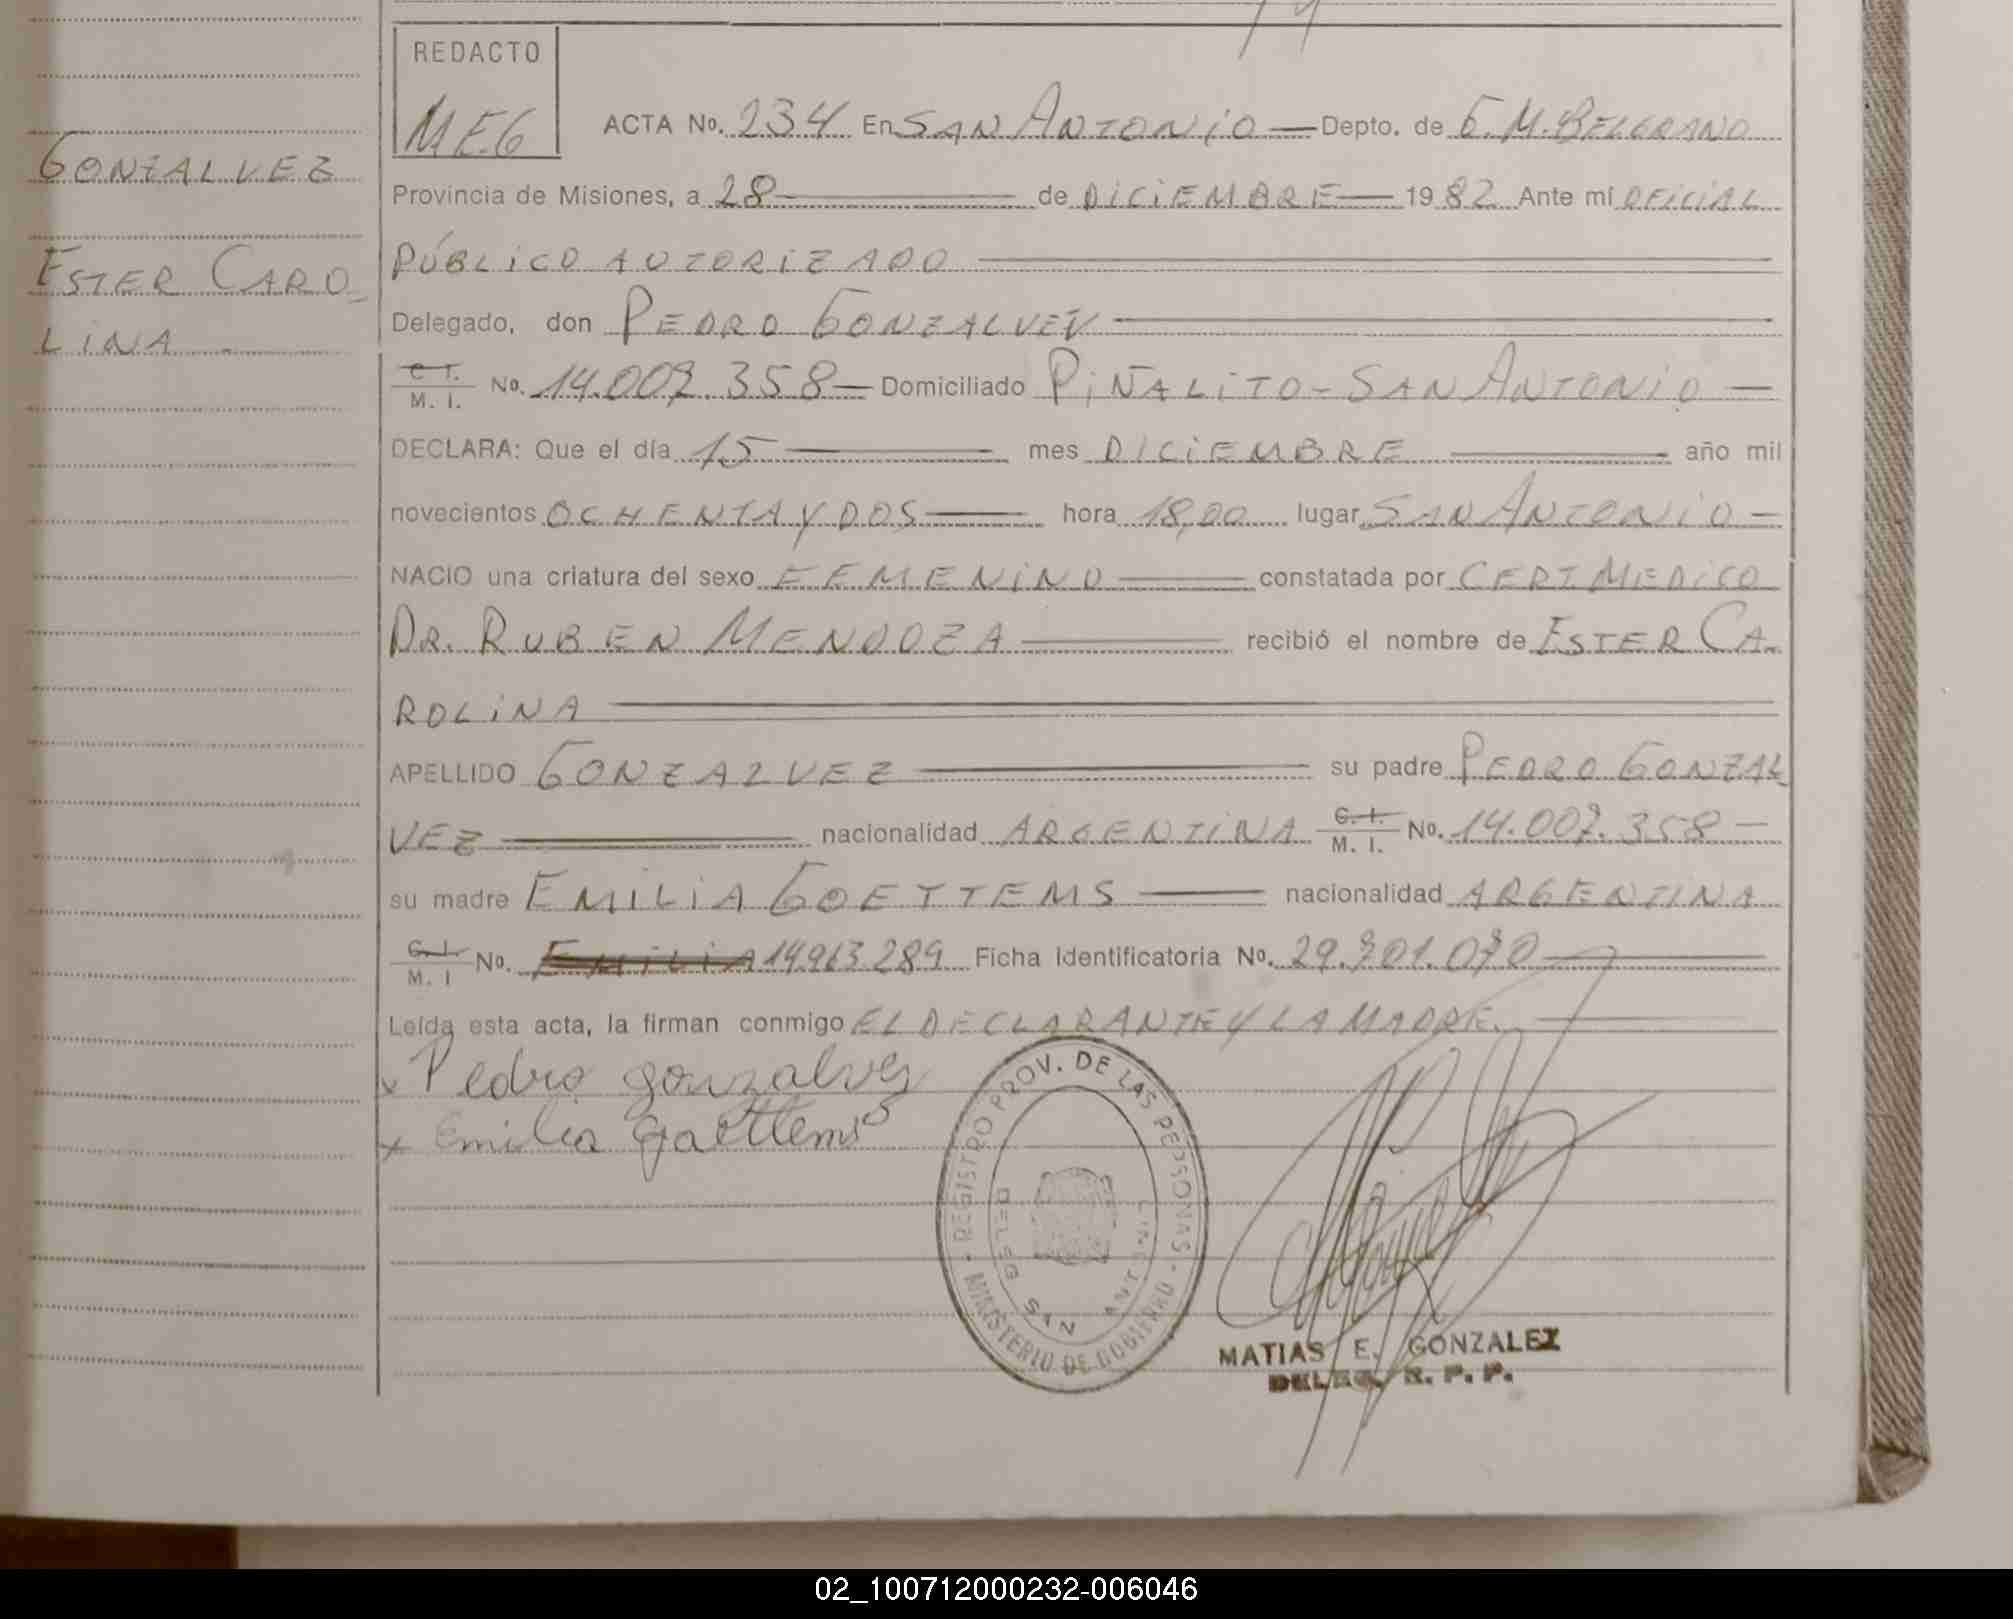 REDACTO
MEG
ACTA No. 234 En SAN ANTONIO — Depto. de G. M. BELGRANO
GONZALVEZ
Provincia de Misiones, a 28 — de DICIEMBRE — 1982 Ante mí OFICIAL
PÚBLICO AUTORIZADO —
ESTER CARO-
LINA -
Delegado, don PEDRO GONZALVEZ —
C. I.
M. I. No. 14.007.358 — Domiciliado PIÑALITO - SAN ANTONIO —
DECLARA: Que el día 15 — mes DICIEMBRE — año mil
novecientos OCHENTA Y DOS — hora 18,00 lugar SAN ANTONIO —
NACIO una criatura del sexo FEMENINO — constatada por CERT MEDICO
DR. RUBEN MENDOZA — recibió el nombre de ESTER CA-
ROLINA —
APELLIDO GONZALVEZ — su padre PEDRO GONZAL
VEZ — nacionalidad ARGENTINA C. I. M. I. No. 14.007.358 —
su madre EMILIA GOETTEMS — nacionalidad ARGENTINA
C. I. M. I No. EMILIA 14.963.289 Ficha Identificatoria No. 29.701.070 —
Leída esta acta, la firman conmigo EL DECLARANTE Y LA MADRE. —
x Pedro gonzalvez
x Emilia Goettems
REGISTRO PROV. DE LAS PERSONAS
DELEG SAN ANTONIO
MINISTERIO DE GOBIERNO
MATIAS E. GONZALEZ
DELEG. R. P. P.
02_100712000232-006046